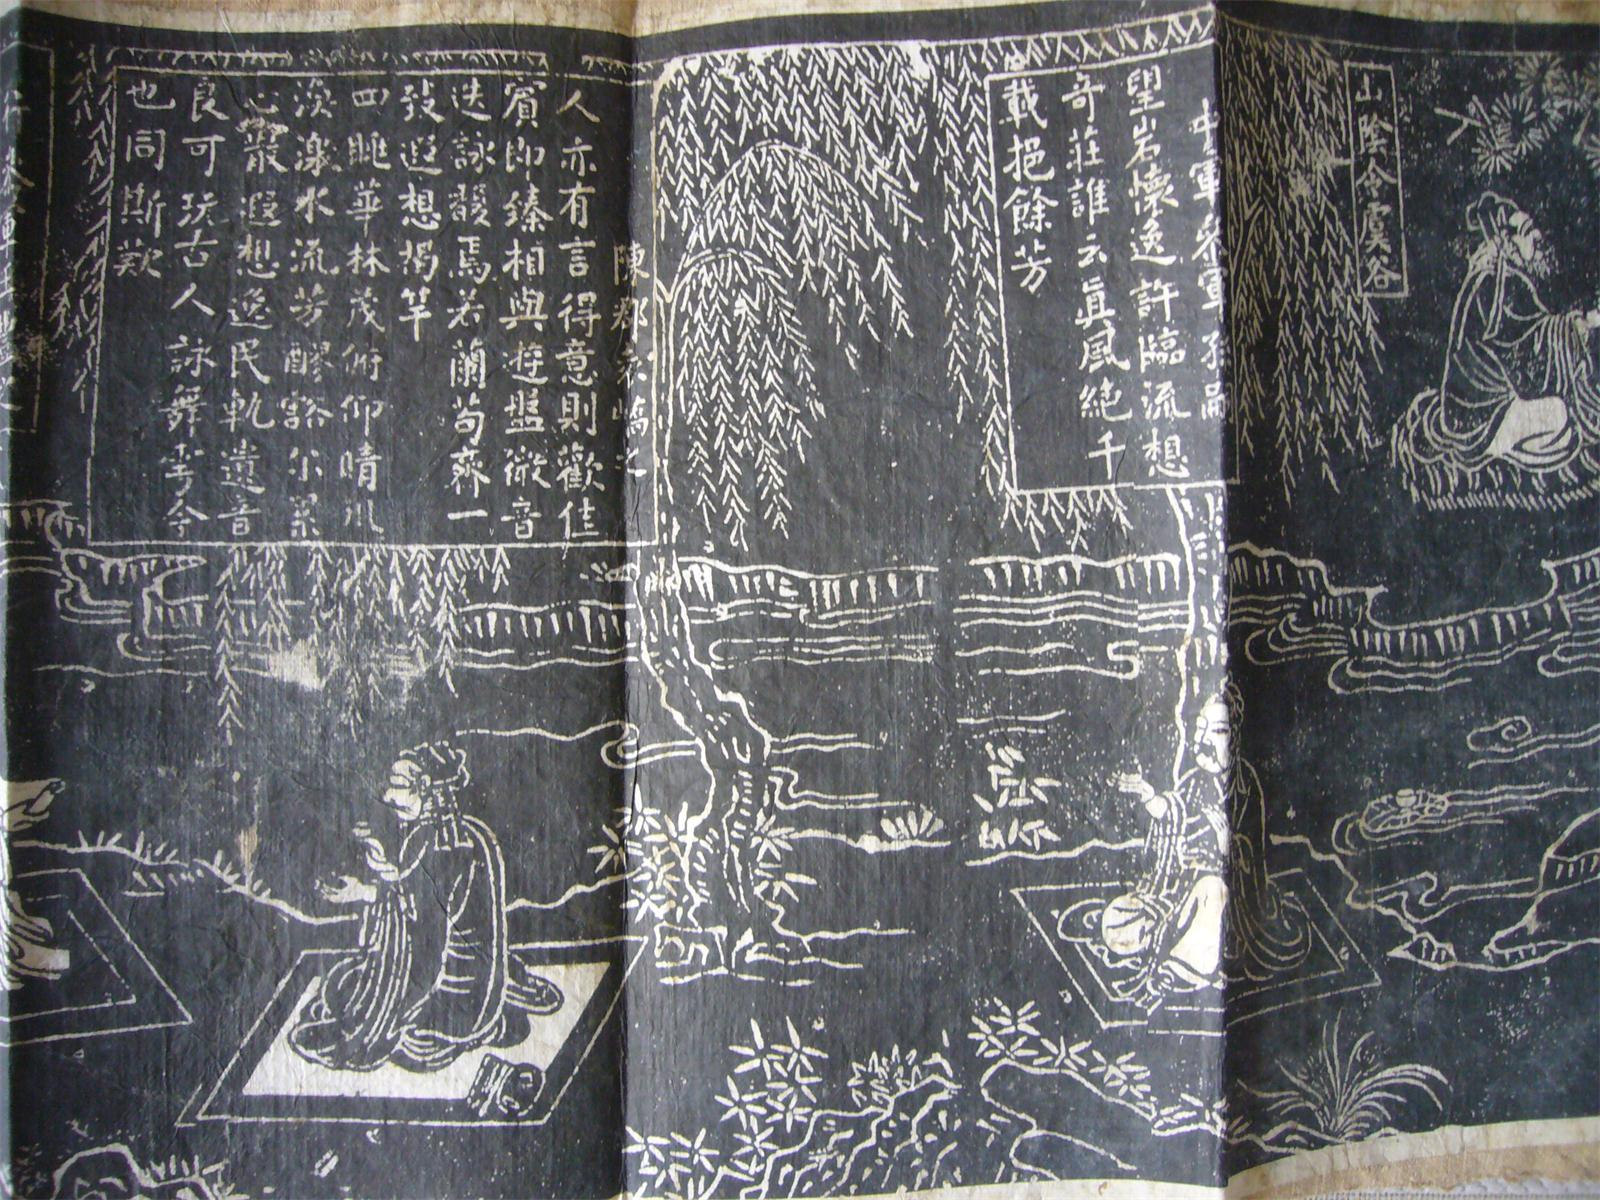 山陰令虞谷
中軍參軍孫嗣
望岩懷逸許臨流想
奇莊誰云眞風絕千
載挹餘芳
陳郡袁嶠之
人亦有言得意則歡佳
賓即臻相與遊盤微音
迭詠馥焉若蘭苟齊一
致遐想揭竿
四眺華林茂俯仰晴川
渙激水流芳醪豁尒累
心散遐想逸民軌遺音
良可玩古人詠舞雩今
也同斯歎